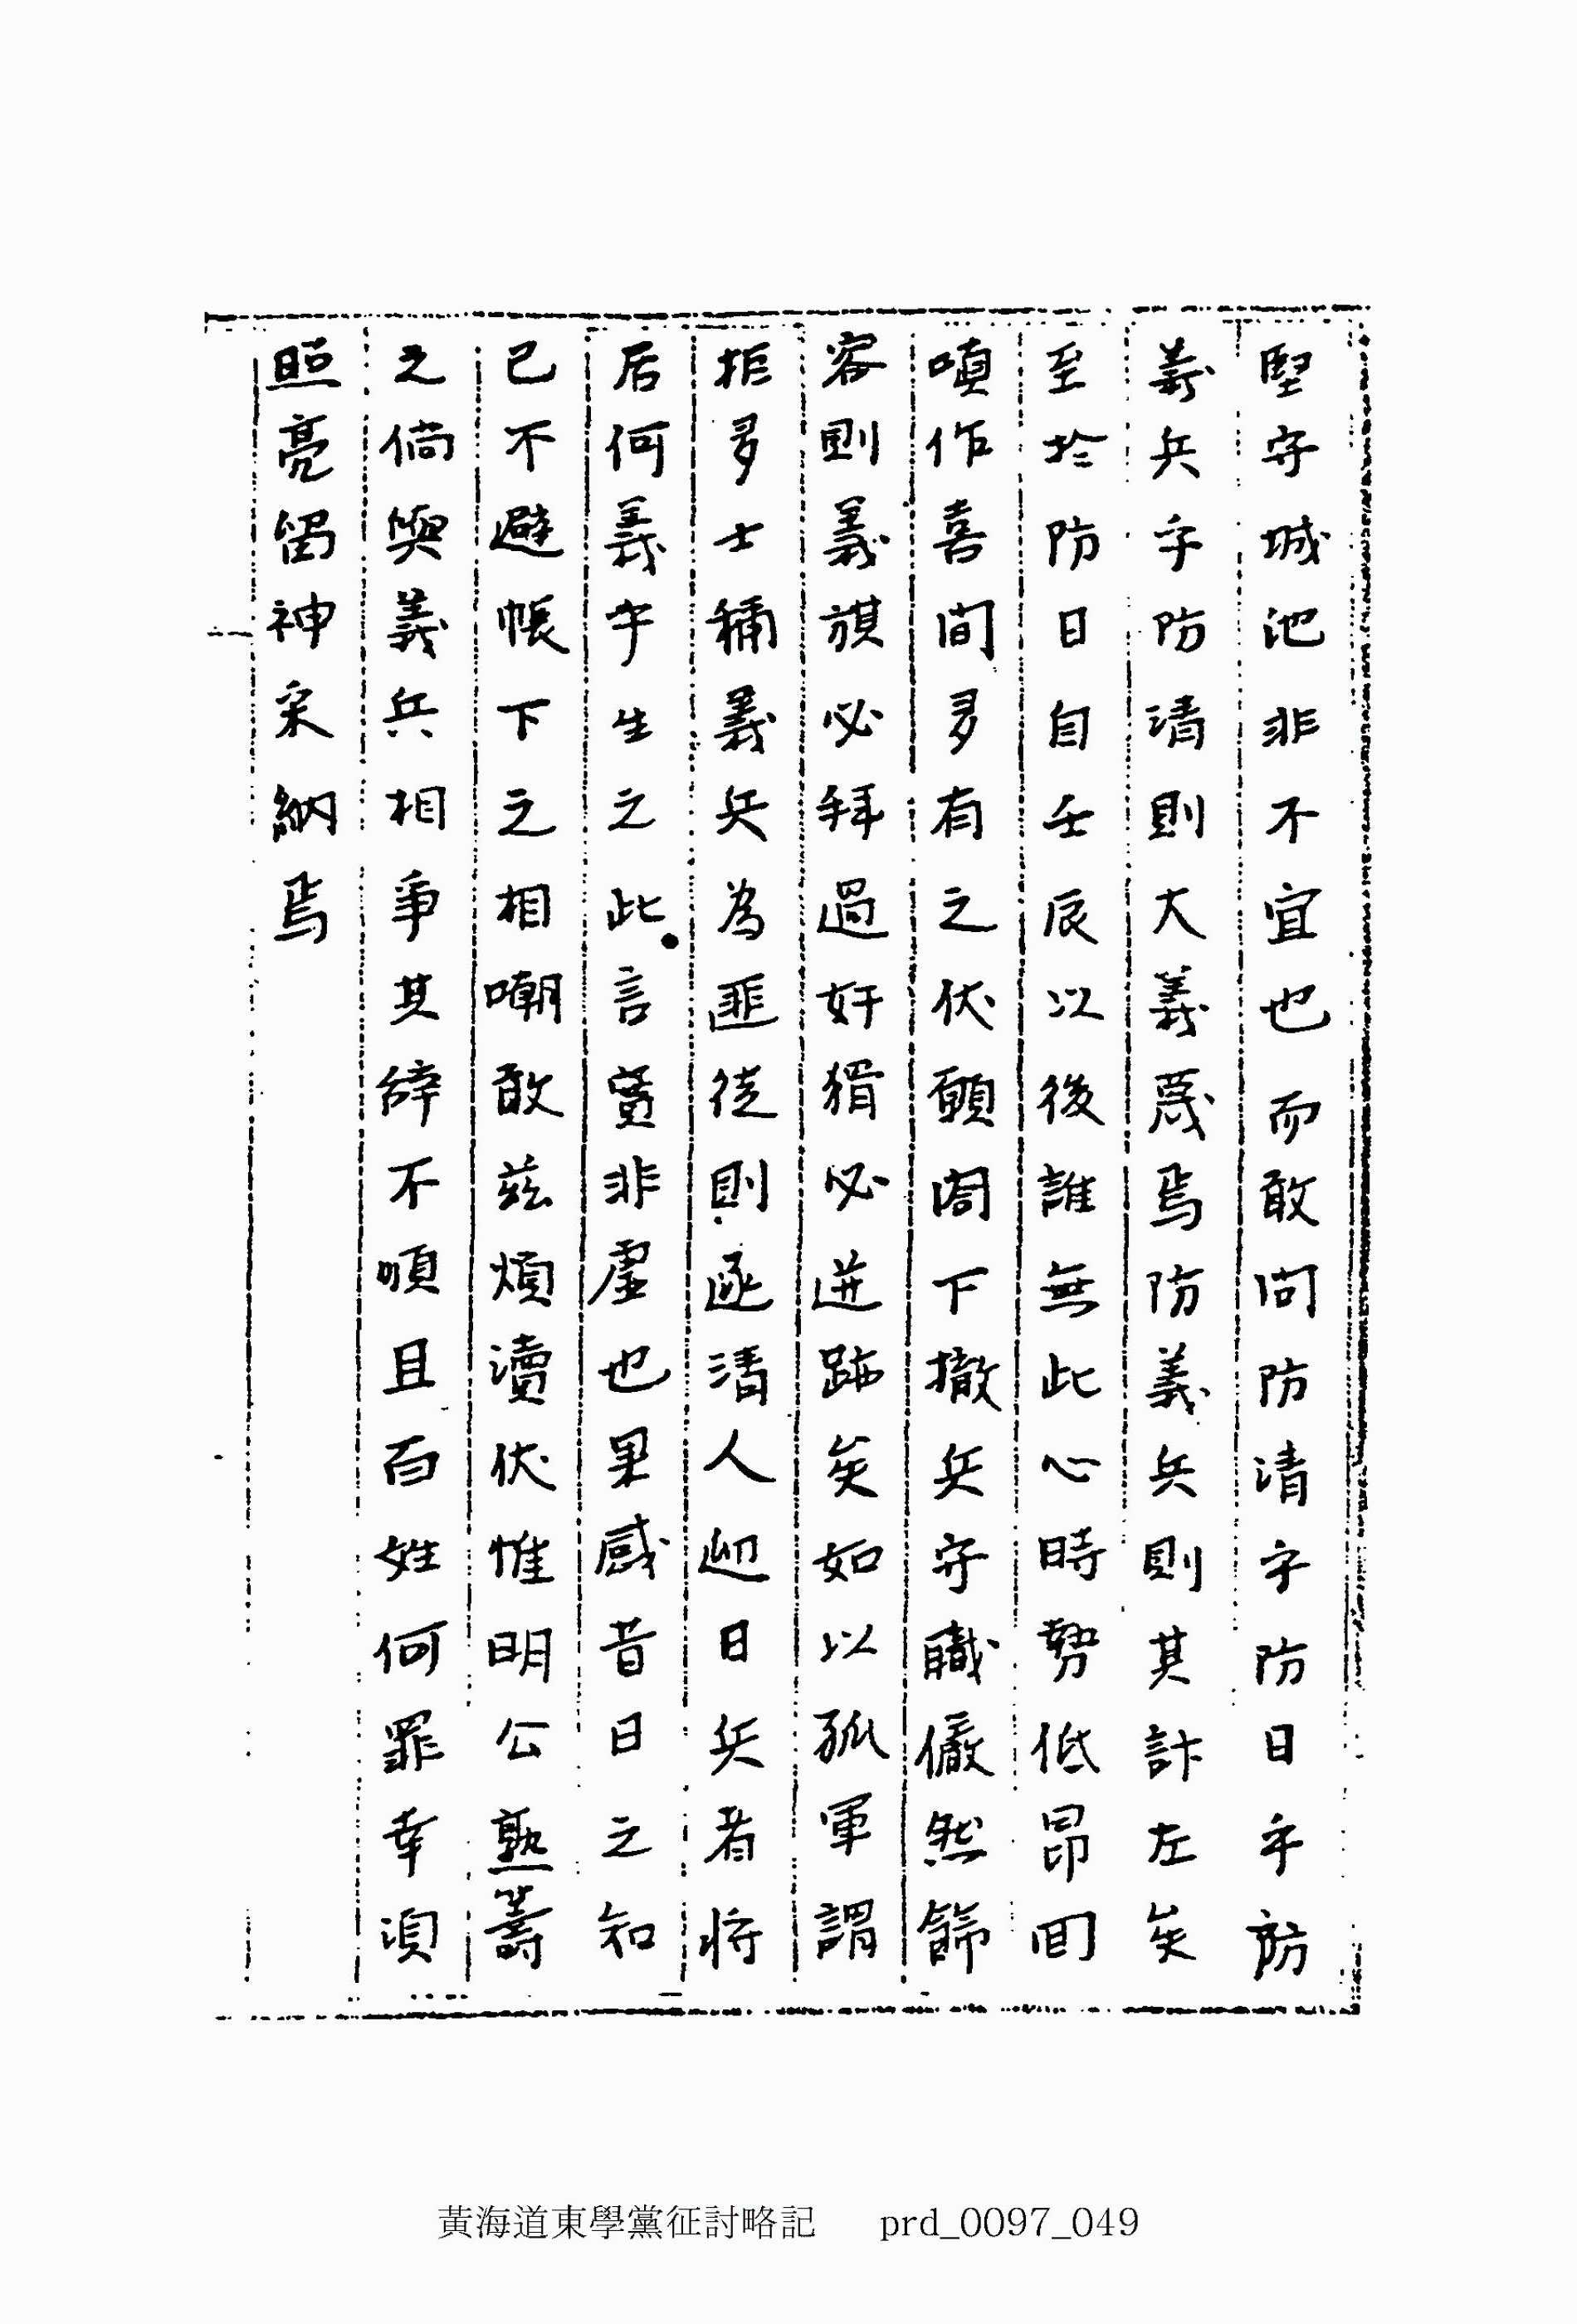 堅守城池非不宜也而敢问防清字防日乎防
義兵乎防清則大義蔑焉防義兵則其計左矣
至於防日自壬辰以後誰無此心時勢低昂回
嗔作喜间多有之伏願閤下撤兵守職儼然飾
容則義旗必拜過奸猾必迸跡矣如以孤軍謂
拒多士稱義兵為匪徒則逐清人迎日兵者将
后何義乎生之此言實非虛也果感昔日之知
己不避帳下之相嘲敢玆煩瀆伏惟明公熟籌
之倘與義兵相爭其辞不順且百姓何罪幸須
照亮留神采納焉
黃海道東學黨征討略記 prd_0097_049